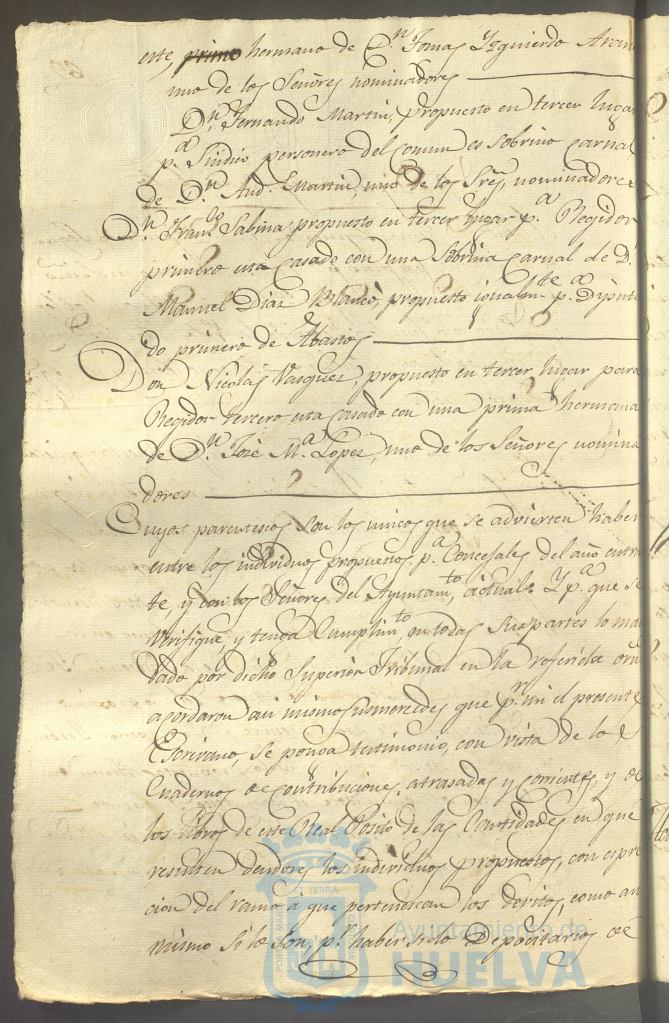 este, primo hermano de Dn. Tomas Yzquierdo Aran
uno de los Señores nominadores
Dn. Fernando Martin, propuesto en tercer lugar
pa. Sindico personero del comun es sobrino carnal
de Dn. And. Martin, uno de los Sres. nominadores
Dn. Franco. Sabina propuesto en tercer lugar pa. Regidor
primero esta casado con una Sobrina carnal de D.
Manuel Diaz Blanco, propuesto igualmte. pa. Diputa
do primero de Abastos
Don Nicolas Vasquez, propuesto en tercer lugar para
Regidor tercero esta casado con una prima hermana
de Dn. José Ma. Lopez, uno de los Señores nomina
dores
Cuyos parentescos son los unicos que se advierten haber
entre los individuos propuestos pa. Concejales del año entran
te, y con los Señores del Ayuntamto. actual. Y pa. que se
verifique y tenga Cumplimto. en todas sus partes lo man
dado por dicho Superior Tribunal en la referida orn
acordaron asi mismo sus mercedes que pr. mi el presente
Escrivano, se ponga testimonio, con vista de los
Cuadernos de contribuciones, atrasadas y corrientes, y de
los libros de este Real Posito de las Cantidades en que
resulten deudores los individuos propuestos, con espre
cion del ramo a que pertenescan los devitos, como asi
mismo si lo son, pr. haber sido Depocitarios de
Ayuntamiento de
HUELVA